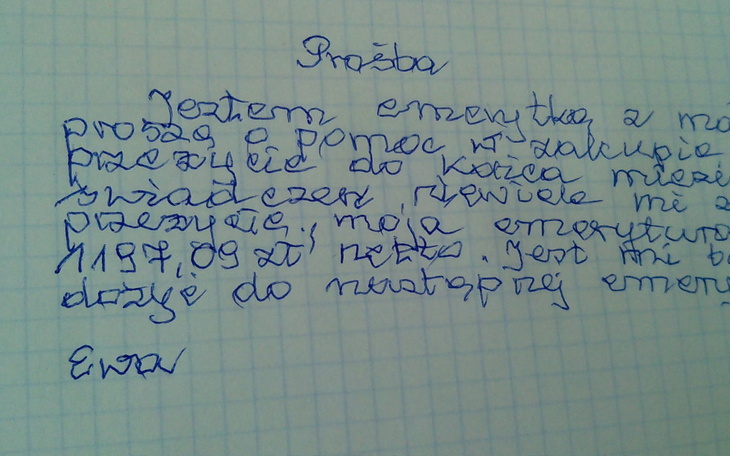 Prośba
Jestem emerytką z
proszę o pomoc w zakupie
przeżycie do końca
świadczeń niewiele mi
przeżycie, moja emerytura
1197,09 zł netto. Jest mi
dożyć do następnej
Ewa